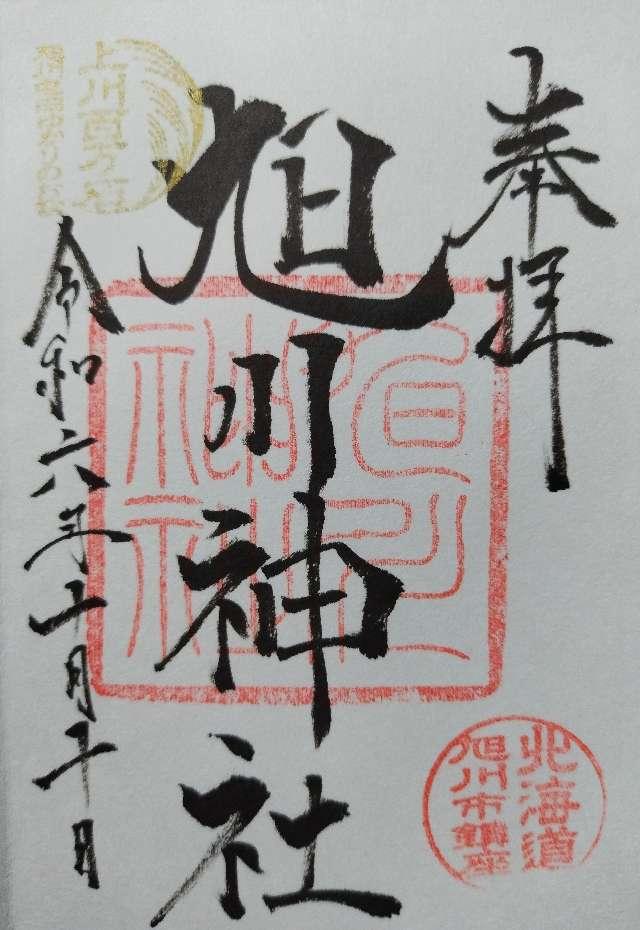 奉拝
旭川神社
令和六年十月十日
旭川神社
北海道
旭川市鎮座
上川百万石